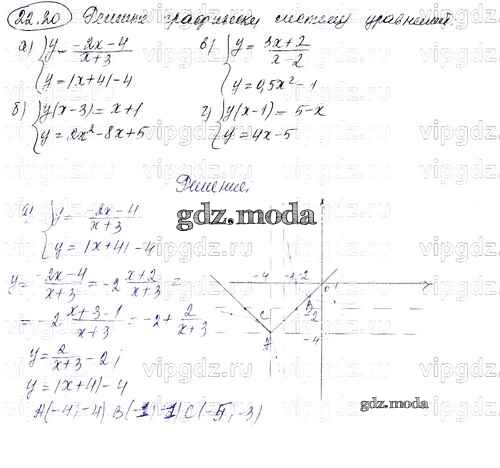 22.20 Решите графически систему уравнений
а) { y = -2x-4 / x+3
y = |x+4| - 4
в) { y = 3x+2 / x-2
y = 0,5x² - 1
б) { y(x-3) = x+1
y = 2x² - 8x + 5
г) { y(x-1) = 5-x
y = 4x-5
Решение.
а) { y = -2x-4 / x+3
y = |x+4| - 4
gdz.moda
y = -2x-4 / x+3 = -2 x+2 / x+3 =
= -2 x+3-1 / x+3 = -2 + 2 / x+3
y = 2 / x+3 - 2;
y = |x+4| - 4
A(-4; -4) B(-1; -1) C(-5; -3)
-4 -2 0 1
-2
-4
A B C
gdz.moda
vipgdz.ru